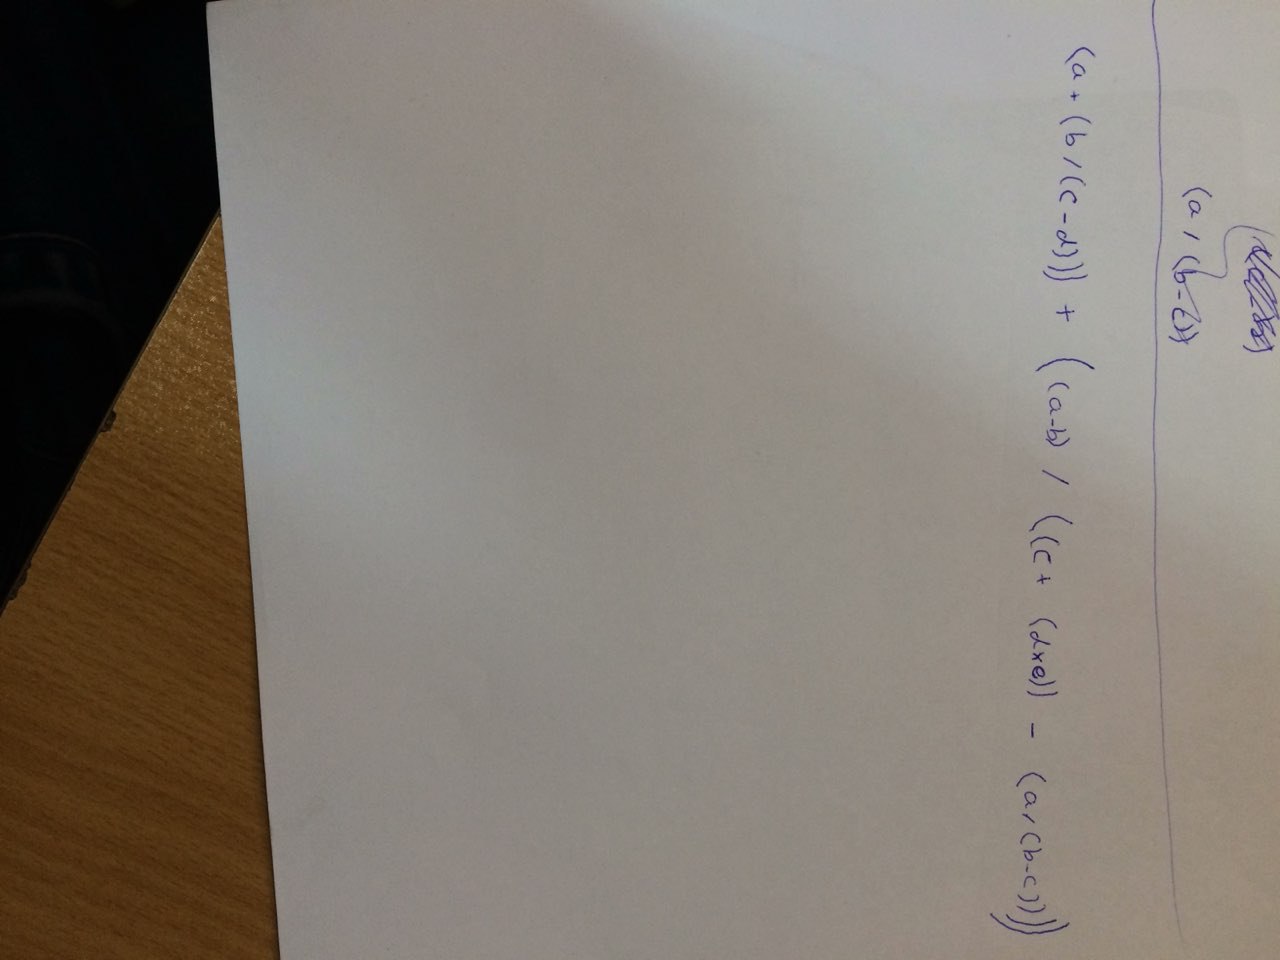 (a / (b-c))
(a + (b / (c - d))) + ((a-b) / ((c + (d×e)) - (a / (b-c))))